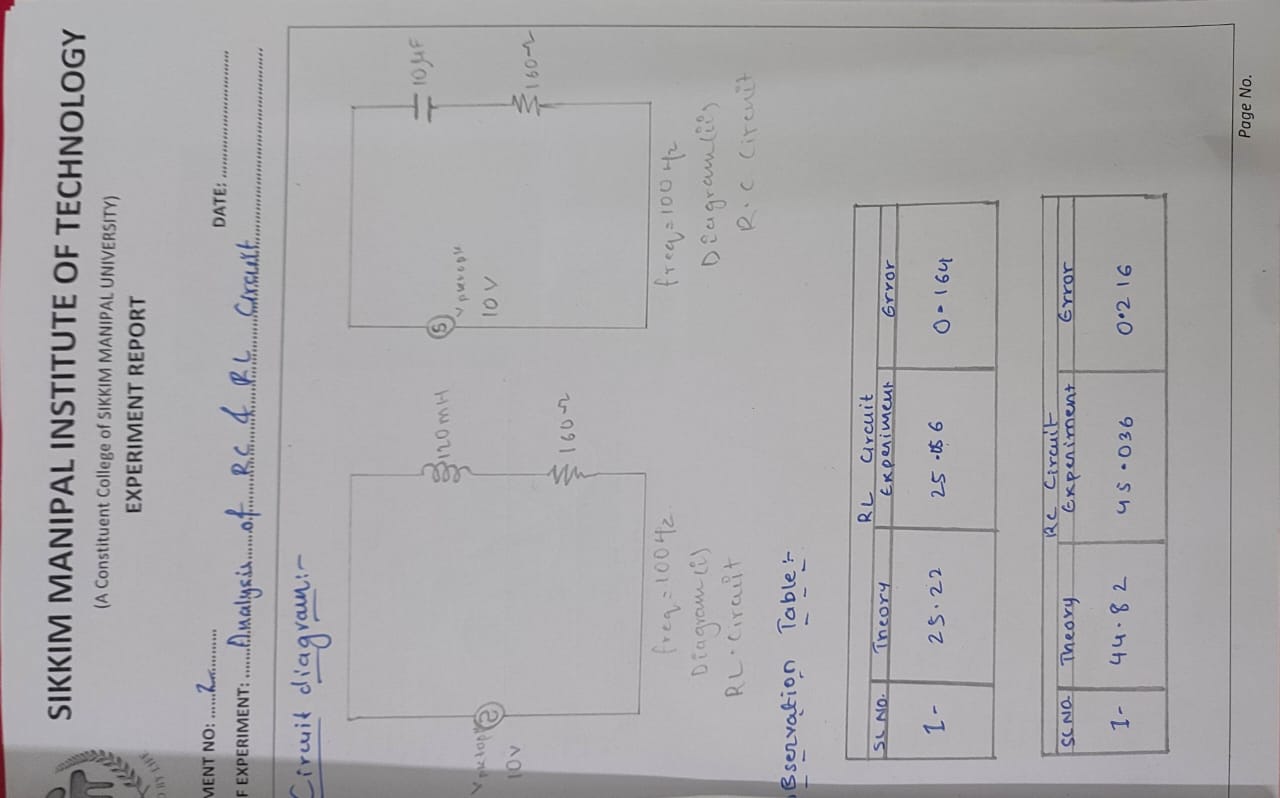 SIKKIM MANIPAL INSTITUTE OF TECHNOLOGY
(A Constituent College of SIKKIM MANIPAL UNIVERSITY)
EXPERIMENT REPORT
D BY LIFE
MENT NO: ......2...............
DATE: ................................
F EXPERIMENT: ......Analysis of RC & RL Circuit
Circuit diagram:-
120mH
10µF
10V
10V
160Ω
160Ω
freq=100Hz
freq=100Hz
Diagram(i)
Diagram(ii)
RL.Circuit
R.C Circuit
Bservation Table:-
RL Circuit
SL NO. Theory Experiment Error
1- 25.22 25.056 0.164
RC Circuit
SL NO. Theory Experiment Error
1- 44.82 45.036 0.216
Page No.